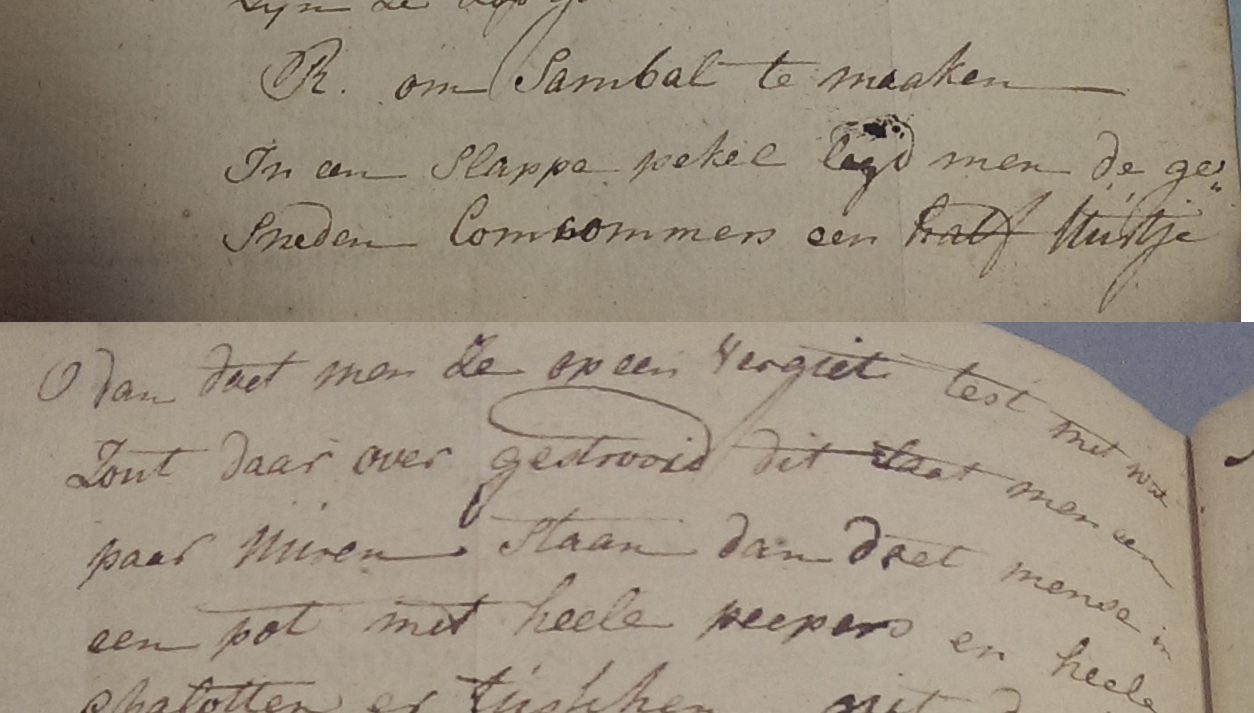 zyn de
R. om Sambal te maaken
In een Slappe pekel legd men de ge„
Sneden Comcommers een half Uurtje
O dan doet men Ze op een Vergiet test met wat
Zout daar over gestrooid dit laat men een
paar Uuren Staan dan doet mense in
een pot met heele peepers en heele
chalotten er tusschen